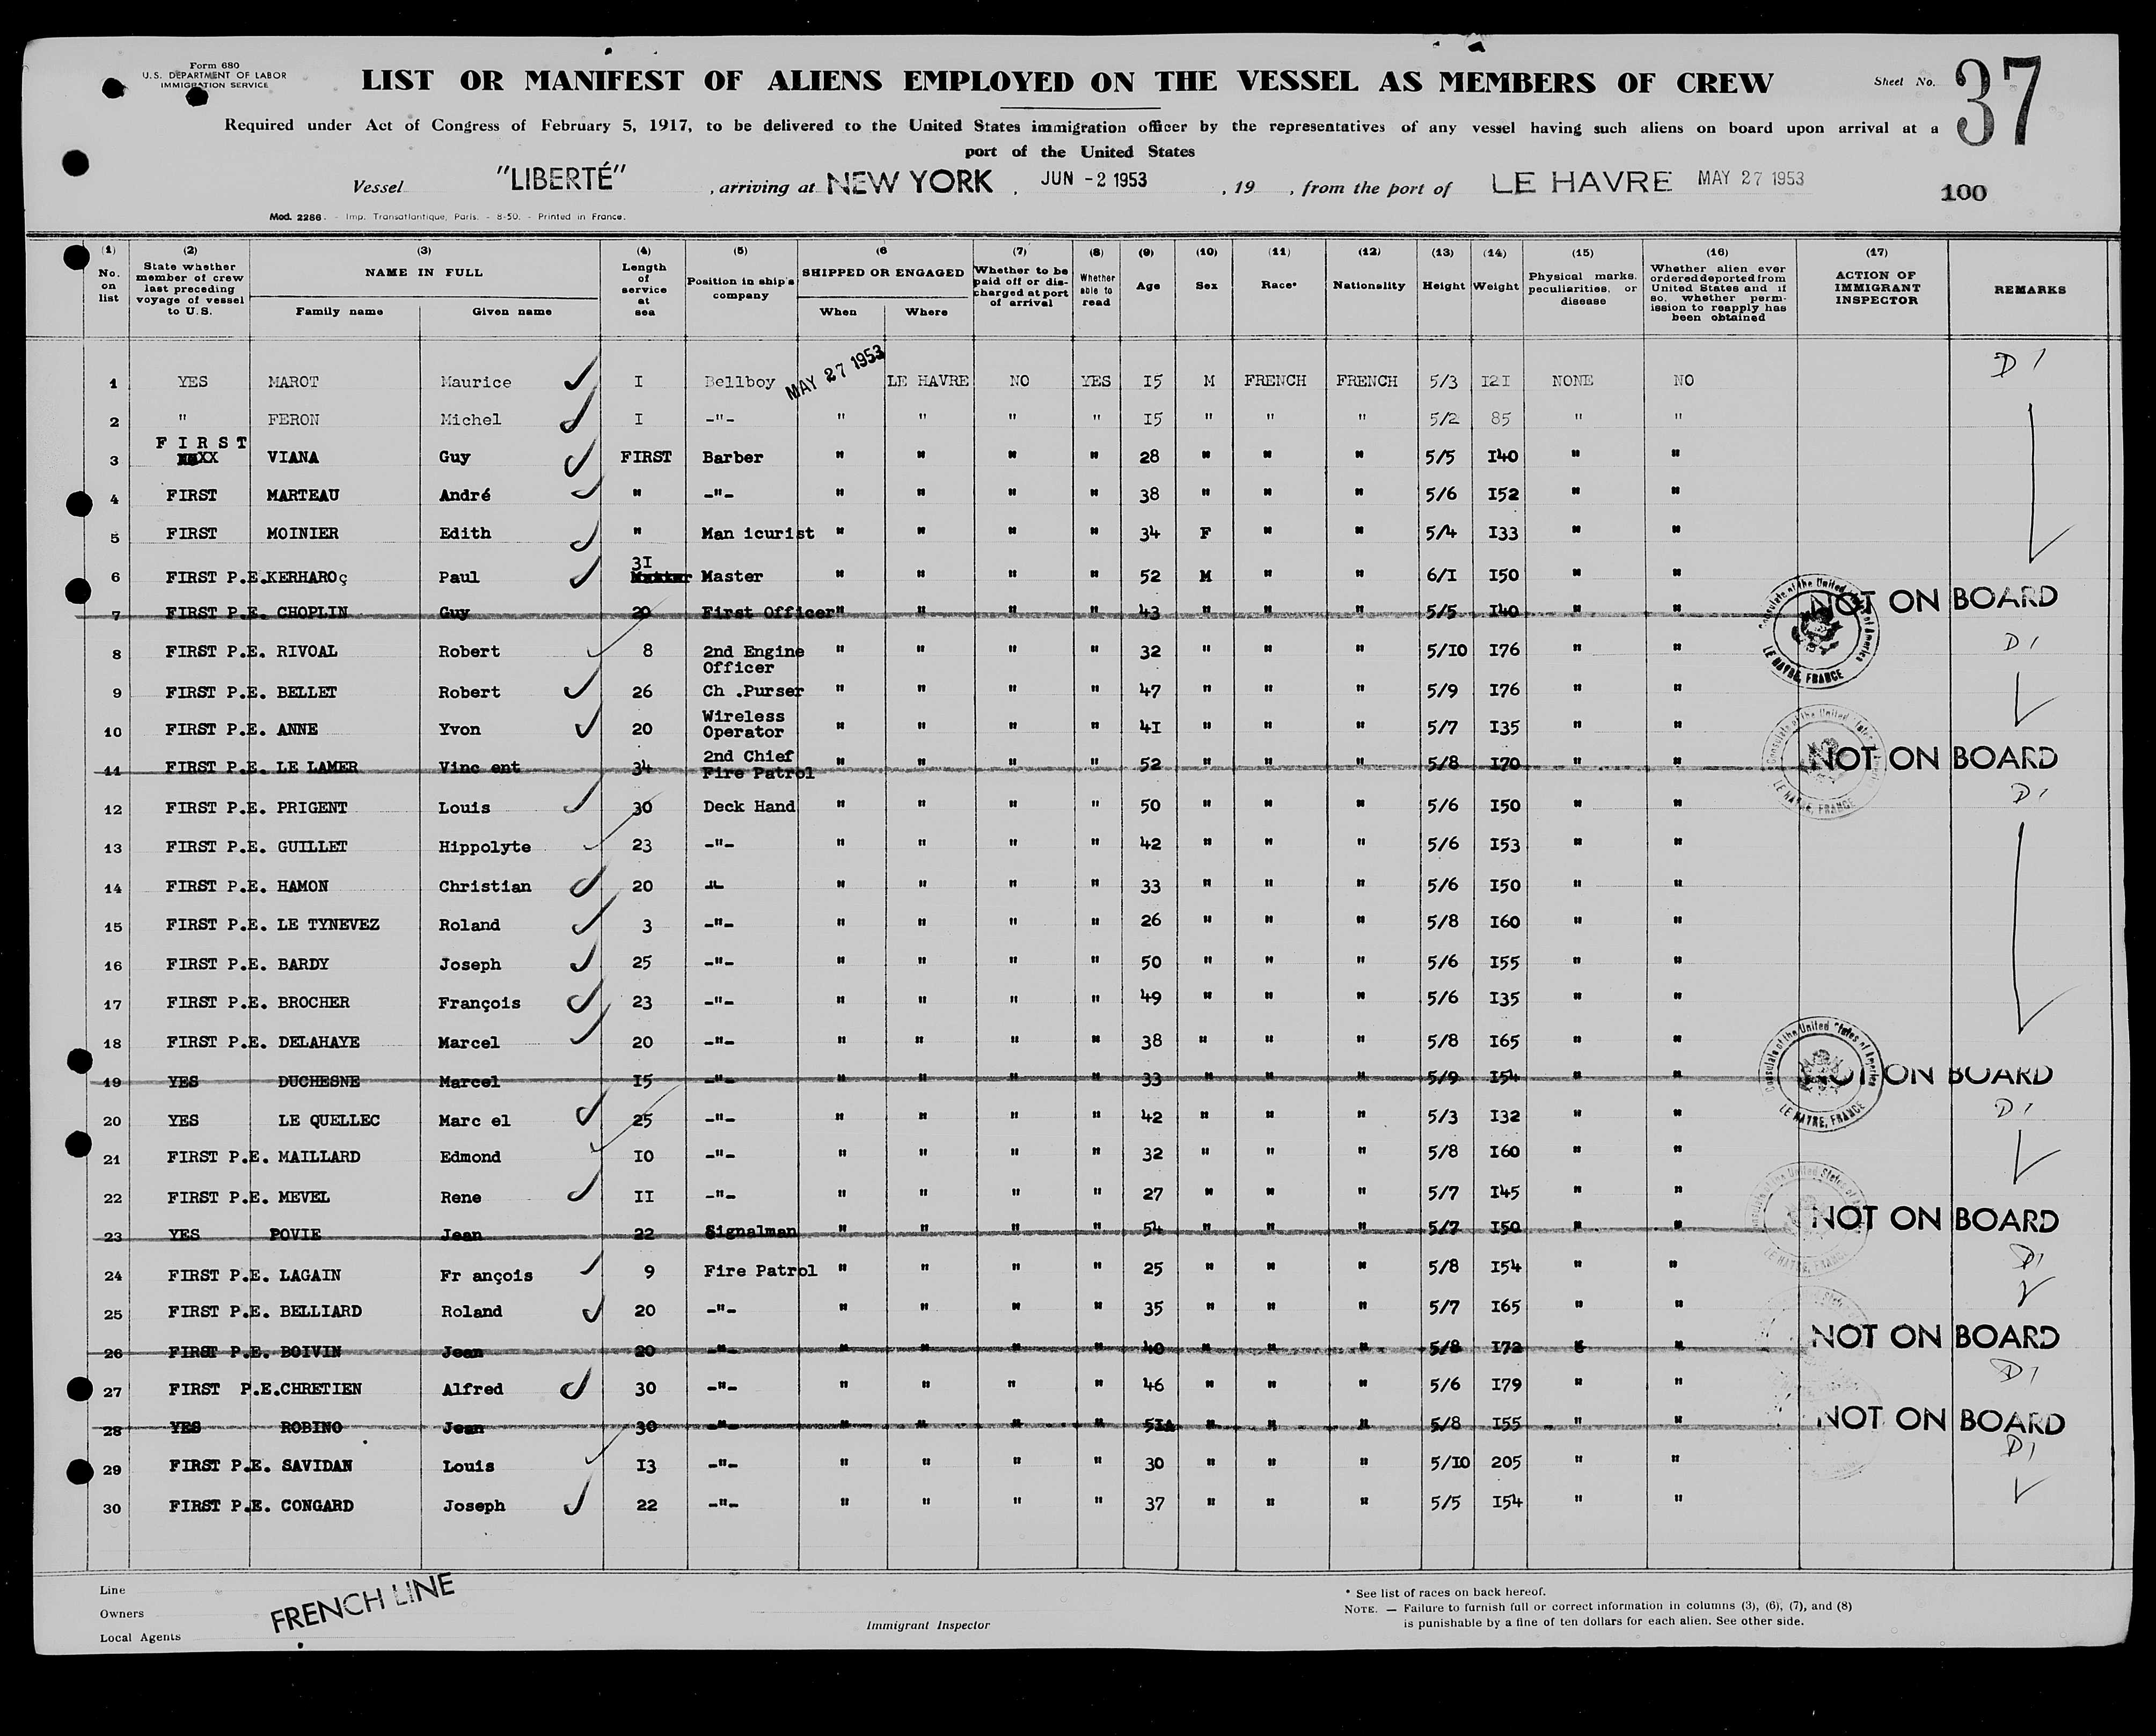 Form 680
U.S. DEPARTMENT OF LABOR
IMMIGRATION SERVICE
LIST OR MANIFEST OF ALIENS EMPLOYED ON THE VESSEL AS MEMBERS OF CREW
Sheet No. 37
Required under Act of Congress of February 5, 1917, to be delivered to the United States immigration officer by the representatives of any vessel having such aliens on board upon arrival at a
port of the United States
Vessel "LIBERTÉ" , arriving at NEW YORK , JUN -2 1953 , 19 , from the port of LE HAVRE MAY 27 1953
100
Mod. 2286. - Imp. Transatlantique, Paris. - 8-50. - Printed in France.
(1) No. on list
(2) State whether member of crew last preceding voyage of vessel to U.S.
(3) NAME IN FULL Family name Given name
(4) Length of service at sea
(5) Position in ship's company
(6 SHIPPED OR ENGAGED When Where
(7) Whether to be paid off or discharged at port of arrival
(8) Whether able to read
(9) Age
(10) Sex
(11) Race*
(12) Nationality
(13) Height
(14) Weight
(15) Physical marks, peculiarities, or disease
(16) Whether alien ever ordered deported from United States and if so, whether permission to reapply has been obtained
(17) ACTION OF IMMIGRANT INSPECTOR
REMARKS
1 YES MAROT Maurice I Bellboy MAY 27 1953 LE HAVRE NO YES I5 M FRENCH FRENCH 5/3 I2I NONE NO D1
2 " FERON Michel I -"- " " " " I5 " " " 5/2 85 " "
3 FIRST VIANA Guy FIRST Barber " " " " 28 " " " 5/5 I40 " "
4 FIRST MARTEAU André " -"- " " " " 38 " " " 5/6 I52 " "
5 FIRST MOINIER Edith " Man icurist " " " " 34 F " " 5/4 I33 " "
6 FIRST P.E. KERHAROç Paul 3I Master " " " " 52 M " " 6/I I50 " "
7 FIRST P.E. CHOPLIN Guy 20 First Officer " " " " 43 " " " 5/5 I40 " " NOT ON BOARD
8 FIRST P.E. RIVOAL Robert 8 2nd Engine Officer " " " " 32 " " " 5/10 I76 " " D1
9 FIRST P.E. BELLET Robert 26 Ch .Purser " " " " 47 " " " 5/9 I76 " "
10 FIRST P.E. ANNE Yvon 20 Wireless Operator " " " " 4I " " " 5/7 I35 " "
11 FIRST P.E. LE LAMER Vinc ent 34 2nd Chief Fire Patrol " " " " 52 " " " 5/8 I70 " " NOT ON BOARD
12 FIRST P.E. PRIGENT Louis 30 Deck Hand " " " " 50 " " " 5/6 I50 " " D1
13 FIRST P.E. GUILLET Hippolyte 23 -"- " " " " 42 " " " 5/6 I53 " "
14 FIRST P.E. HAMON Christian 20 -"- " " " " 33 " " " 5/6 I50 " "
15 FIRST P.E. LE TYNEVEZ Roland 3 -"- " " " " 26 " " " 5/8 I60 " "
16 FIRST P.E. BARDY Joseph 25 -"- " " " " 50 " " " 5/6 I55 " "
17 FIRST P.E. BROCHER François 23 -"- " " " " 49 " " " 5/6 I35 " "
18 FIRST P.E. DELAHAYE Marcel 20 -"- " " " " 38 " " " 5/8 I65 " "
19 YES DUCHESNE Marcel I5 -"- " " " " 33 " " " 5/9 I54 " " NOT ON BOARD
20 YES LE QUELLEC Marc el 25 -"- " " " " 42 " " " 5/3 I32 " " D1
21 FIRST P.E. MAILLARD Edmond I0 -"- " " " " 32 " " " 5/8 I60 " "
22 FIRST P.E. MEVEL Rene II -"- " " " " 27 " " " 5/7 I45 " "
23 YES POVIE Jean 22 Signalman " " " " 54 " " " 5/7 I50 " " NOT ON BOARD
24 FIRST P.E. LAGAIN Fr ançois 9 Fire Patrol " " " " 25 " " " 5/8 I54 " " D1
25 FIRST P.E. BELLIARD Roland 20 -"- " " " " 35 " " " 5/7 I65 " "
26 FIRST P.E. BOIVIN Jean 20 -"- " " " " 40 " " " 5/8 I72 " " NOT ON BOARD
27 FIRST P.E. CHRETIEN Alfred 30 -"- " " " " 46 " " " 5/6 I79 " " D1
28 YES ROBINO Jean 30 -"- " " " " 5I " " " 5/8 I55 " " NOT ON BOARD
29 FIRST P.E. SAVIDAN Louis I3 -"- " " " " 30 " " " 5/I0 205 " " D1
30 FIRST P.E. CONGARD Joseph 22 -"- " " " " 37 " " " 5/5 I54 " "
Consulate of the United States of America
LE HAVRE, FRANCE
Line
Owners
Local Agents
FRENCH LINE
Immigrant Inspector
* See list of races on back hereof.
NOTE. — Failure to furnish full or correct information in columns (3), (6), (7), and (8)
is punishable by a fine of ten dollars for each alien. See other side.